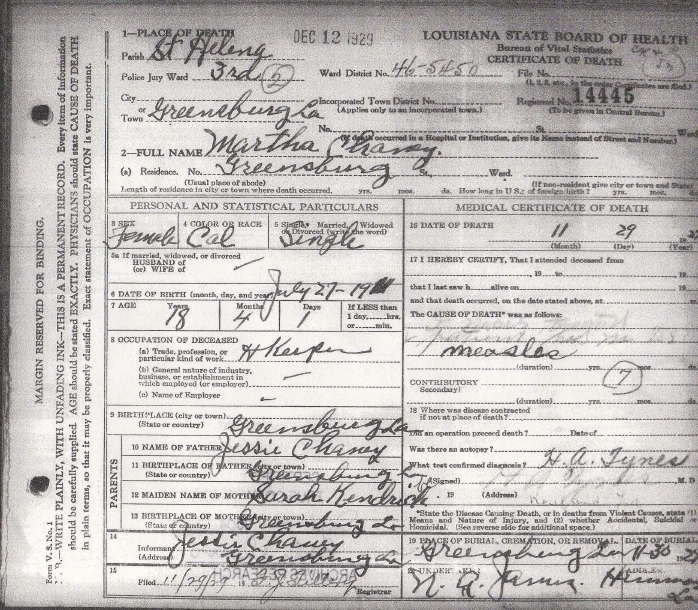 DEC 12 1929
LOUISIANA STATE BOARD OF HEALTH
Bureau of Vital Statistics
CERTIFICATE OF DEATH
1—PLACE OF DEATH
Parish St Helena
Police Jury Ward 3rd (5) Ward District No. 46-5450 File No.
City
or
Town Greensburg La Incorporated Town District No.
(Applies only to an incorporated town.)
Registered No. 14445
(To be given in Central Bureau.)
No. St. Ward
(If death occurred in a Hospital or Institution, give its Name instead of Street and Number.)
2—FULL NAME Martha Chaney.
(a) Residence. No. Greensburg St. Ward.
(Usual place of abode) (If non-resident give city or town and State)
Length of residence in city or town where death occurred. yrs. mos. ds. How long in U.S., of foreign birth? yrs. mos.
PERSONAL AND STATISTICAL PARTICULARS
3 SEX Female
4 COLOR OR RACE Col
5 Single, Married, Widowed or Divorced (write the word) Single
5a If married, widowed, or divorced
HUSBAND of
(or) WIFE of
6 DATE OF BIRTH (month, day, and year) July 27-19
7 AGE Years Months Days If LESS than
18 4 1 1 day, hrs.
or min.
8 OCCUPATION OF DECEASED
(a) Trade, profession, or
particular kind of work H Keeper
(b) General nature of industry,
business, or establishment in
which employed (or employer)
(c) Name of Employer
9 BIRTHPLACE (city or town)
(State or country) Greensburg La
PARENTS
10 NAME OF FATHER Jessie Chaney
11 BIRTHPLACE OF FATHER (city or town)
(State or country) Greensburg La
12 MAIDEN NAME OF MOTHER Sarah Kendrick
13 BIRTHPLACE OF MOTHER (city or town)
(State or country) Greensburg La
14
Informant Jessie Chaney
(Address) Greensburg La
15
Filed 11/29/29 Registrar
MEDICAL CERTIFICATE OF DEATH
16 DATE OF DEATH 11 29 29
(Month) (Day) (Year)
17 I HEREBY CERTIFY, That I attended deceased from
19 to 19
that I last saw h alive on 19
and that death occurred, on the date stated above, at
The CAUSE OF DEATH* was as follows:
measles
(duration) yrs. mos.
CONTRIBUTORY
Secondary) (7)
(duration) yrs. mos.
18 Where was disease contracted
if not at place of death?
Did an operation precede death? Date of
Was there an autopsy?
What test confirmed diagnosis? H.A. Tynes
(Signed) M.D.
19 (Address)
*State the Disease Causing Death, or in deaths from Violent Causes, state (1)
Means and Nature of Injury, and (2) whether Accidental, Suicidal or
Homicidal. (See reverse side for additional space.)
19 PLACE OF BURIAL, CREMATION, OR REMOVAL DATE OF BURIAL
Greensburg La 11-30 29
MARGIN RESERVED FOR BINDING.
WRITE PLAINLY, WITH UNFADING INK—THIS IS A PERMANENT RECORD. Every item of Information
should be carefully supplied. AGE should be stated EXACTLY. PHYSICIANS should state CAUSE OF DEATH
in plain terms, so that it may be properly classified. Exact statement of OCCUPATION is very important.
Form V. S. No. 1